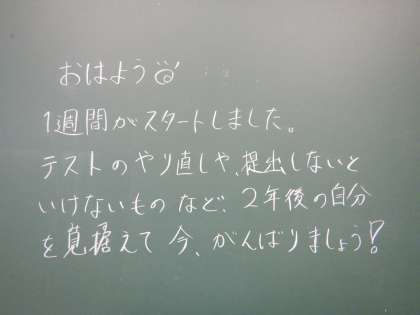 おはよう
1週間がスタートしました。
テストのやり直しや、提出しないと
いけないものなど、2年後の自分
を見据えて今、がんばりましょう!